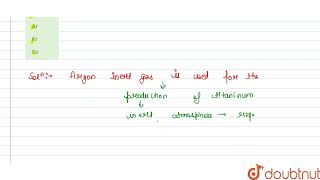 Ar
Kr
Xe
Solⁿ:- Argon Inert gas is used for the
production of titaninum
inert atmosphere → req.
doubtnut